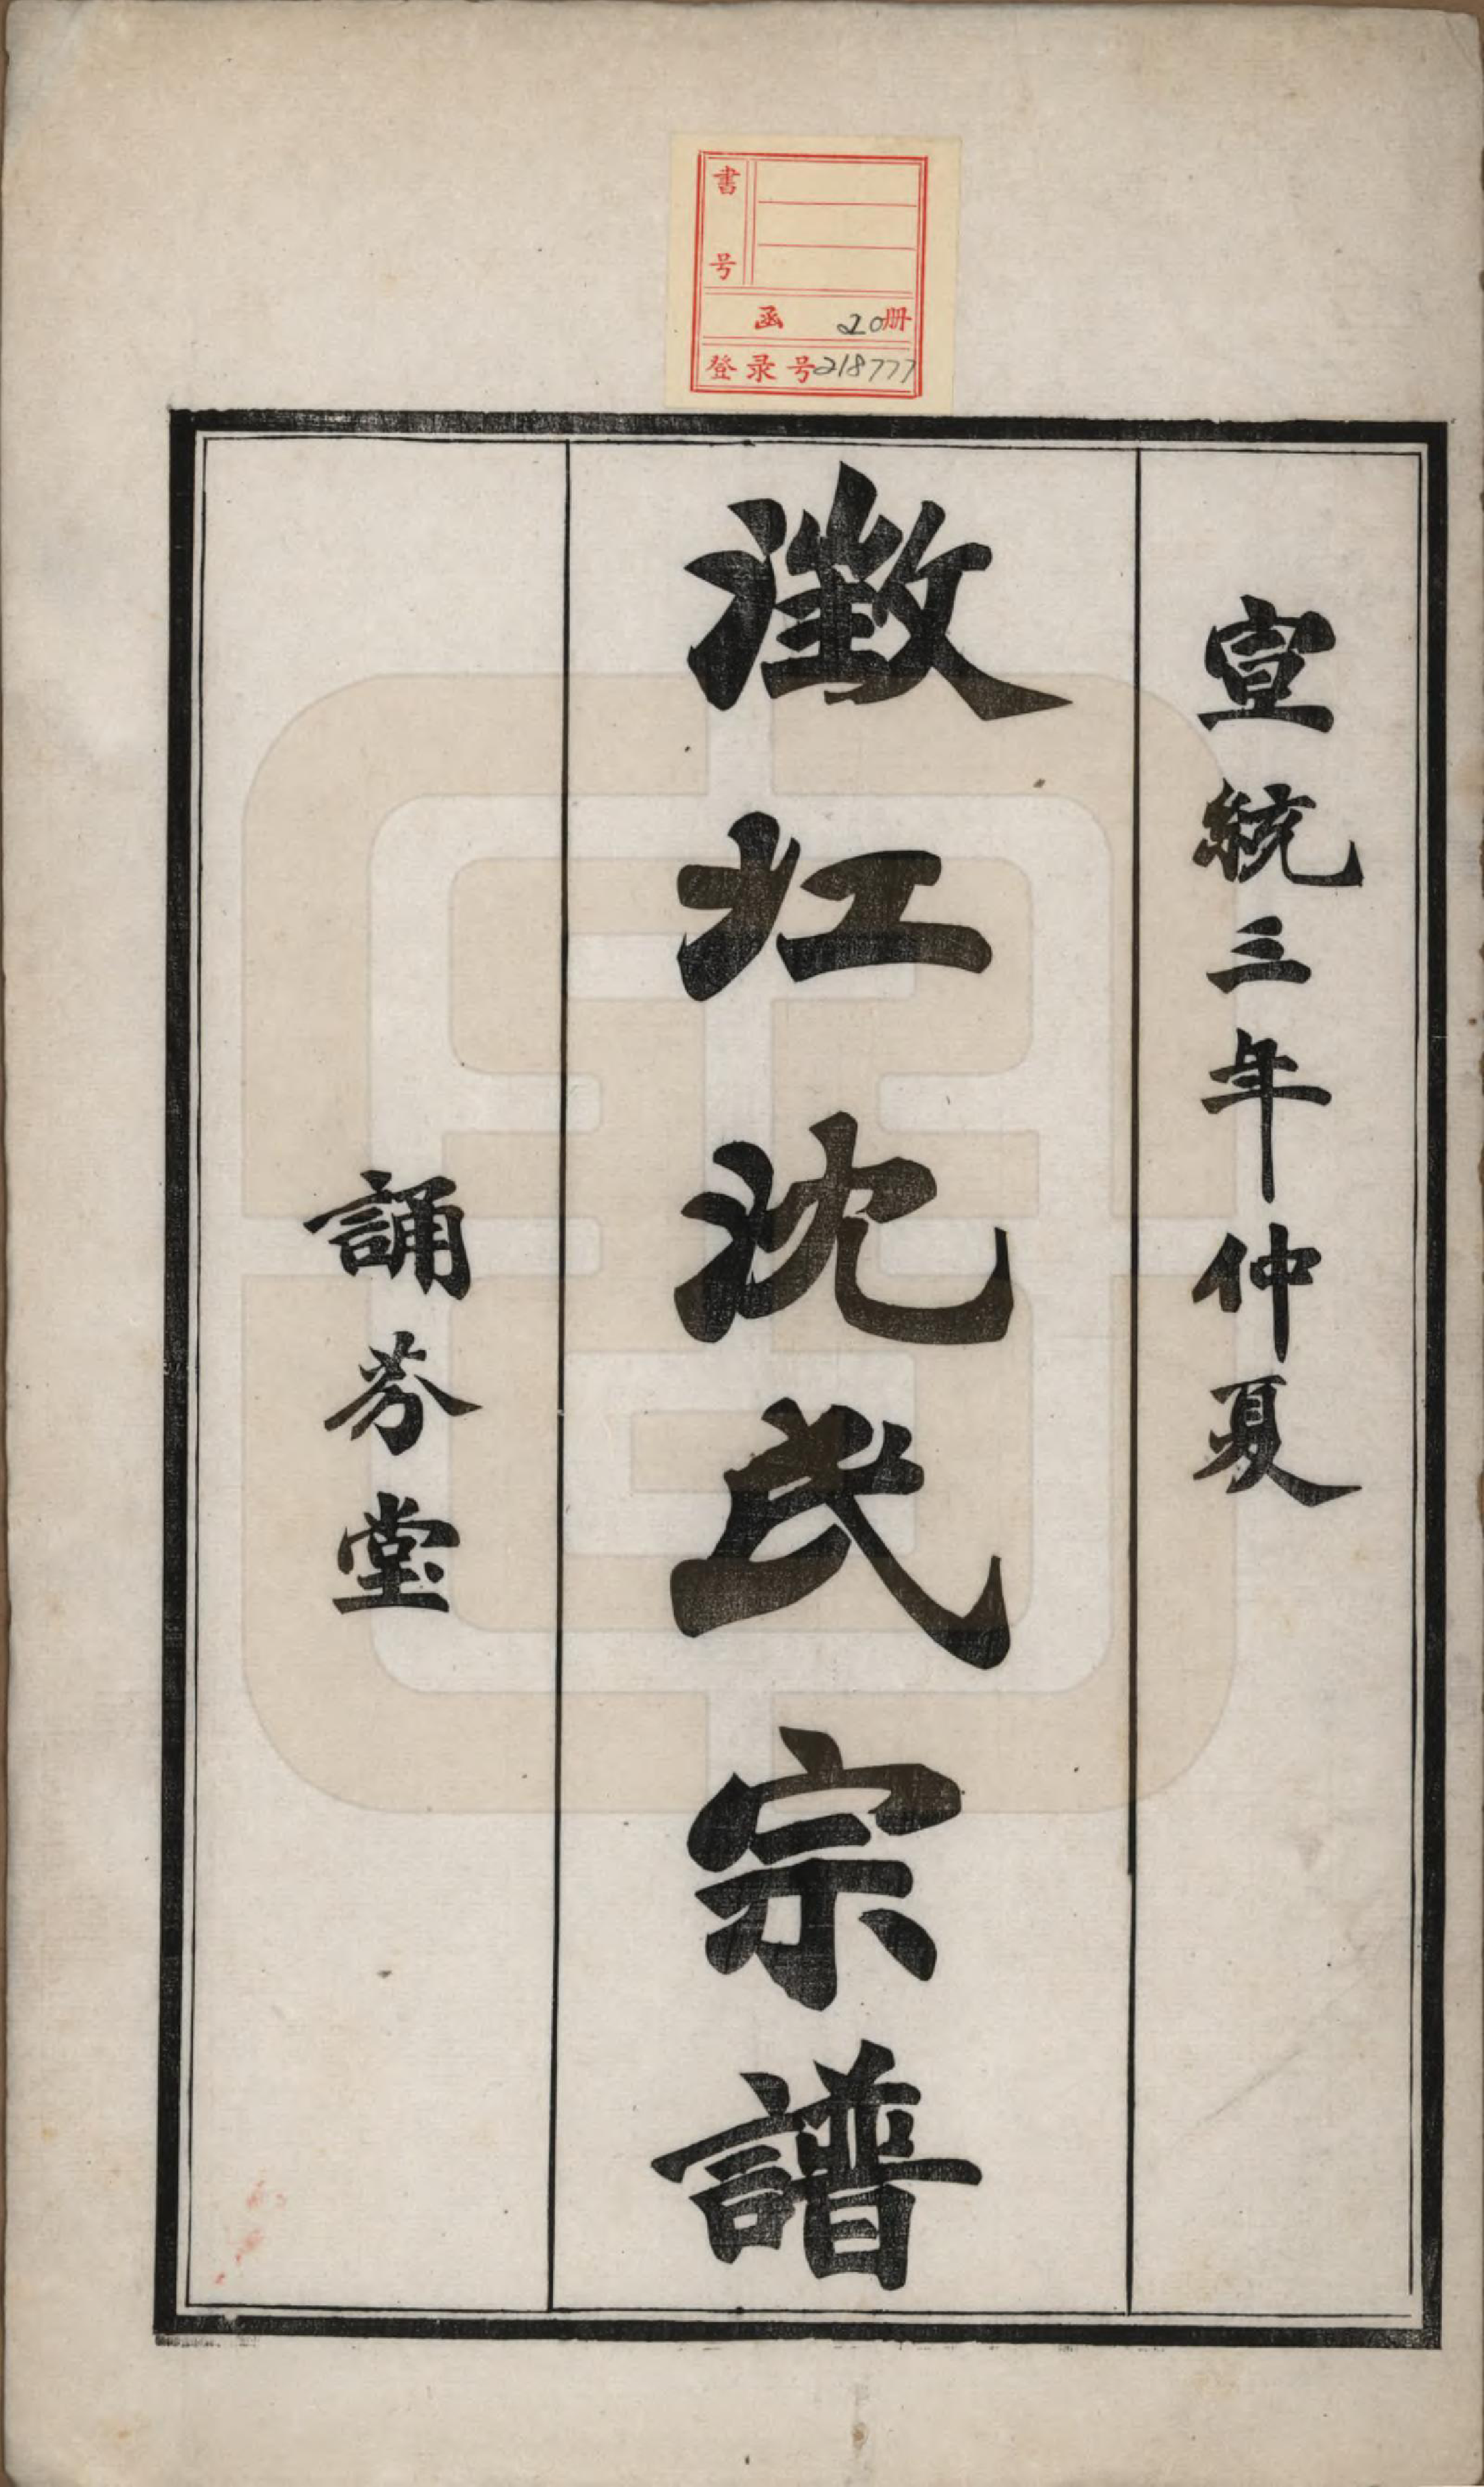 書号
函 20册
登录号218777
宣統三年仲夏
澂江沈氏宗譜
誦芬堂